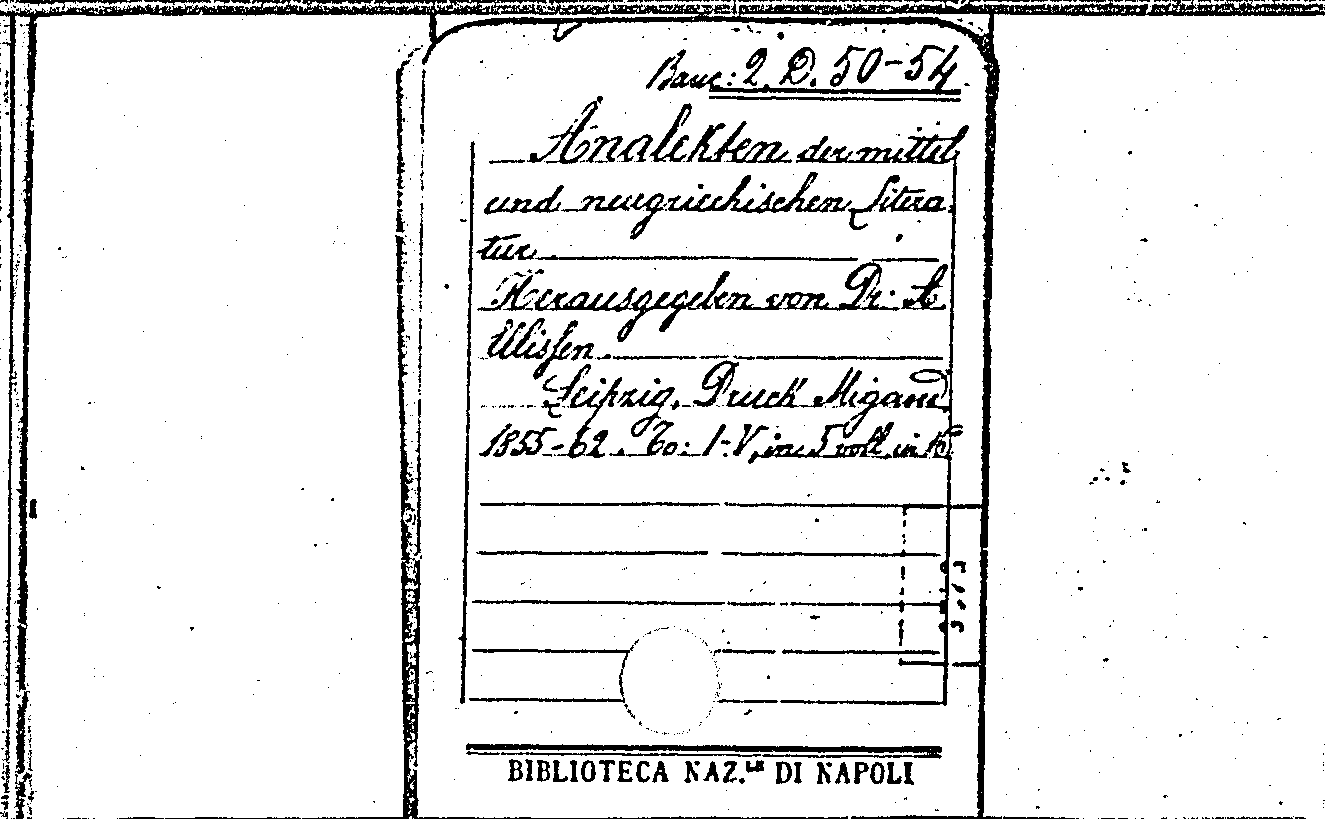 Banc: 2. D. 50-54
Analekten der mittel
und neugriechischen Litera-
tur.
Herausgegeben von Dr. A
Ellissen.
Leipzig, Druck Migand
1855-62. To: I-V, in 5 voll. in
BIBLIOTECA NAZ.LE DI NAPOLI